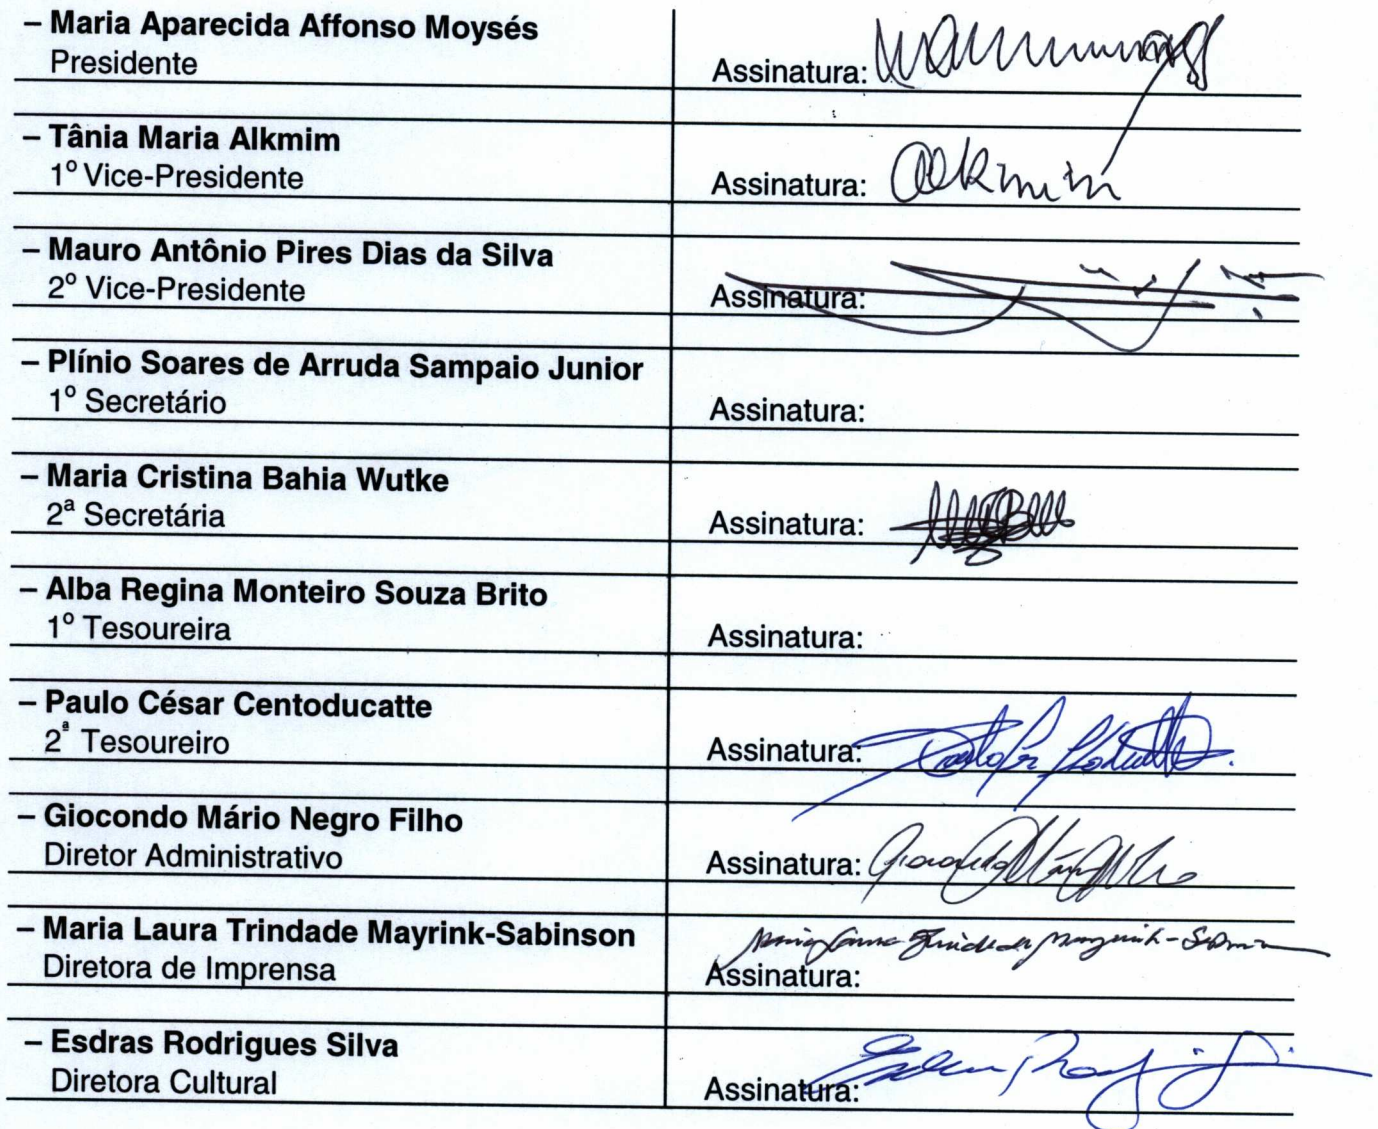 – Maria Aparecida Affonso Moysés
Presidente
Assinatura:
– Tânia Maria Alkmim
1º Vice-Presidente
Assinatura: Alkmim
– Mauro Antônio Pires Dias da Silva
2º Vice-Presidente
Assinatura:
– Plínio Soares de Arruda Sampaio Junior
1º Secretário
Assinatura:
– Maria Cristina Bahia Wutke
2ª Secretária
Assinatura:
– Alba Regina Monteiro Souza Brito
1º Tesoureira
Assinatura:
– Paulo César Centoducatte
2ª Tesoureiro
Assinatura:
– Giocondo Mário Negro Filho
Diretor Administrativo
Assinatura:
– Maria Laura Trindade Mayrink-Sabinson
Maria Laura Trindade Mayrink-Sabinson
Diretora de Imprensa
Assinatura:
– Esdras Rodrigues Silva
Diretora Cultural
Assinatura: